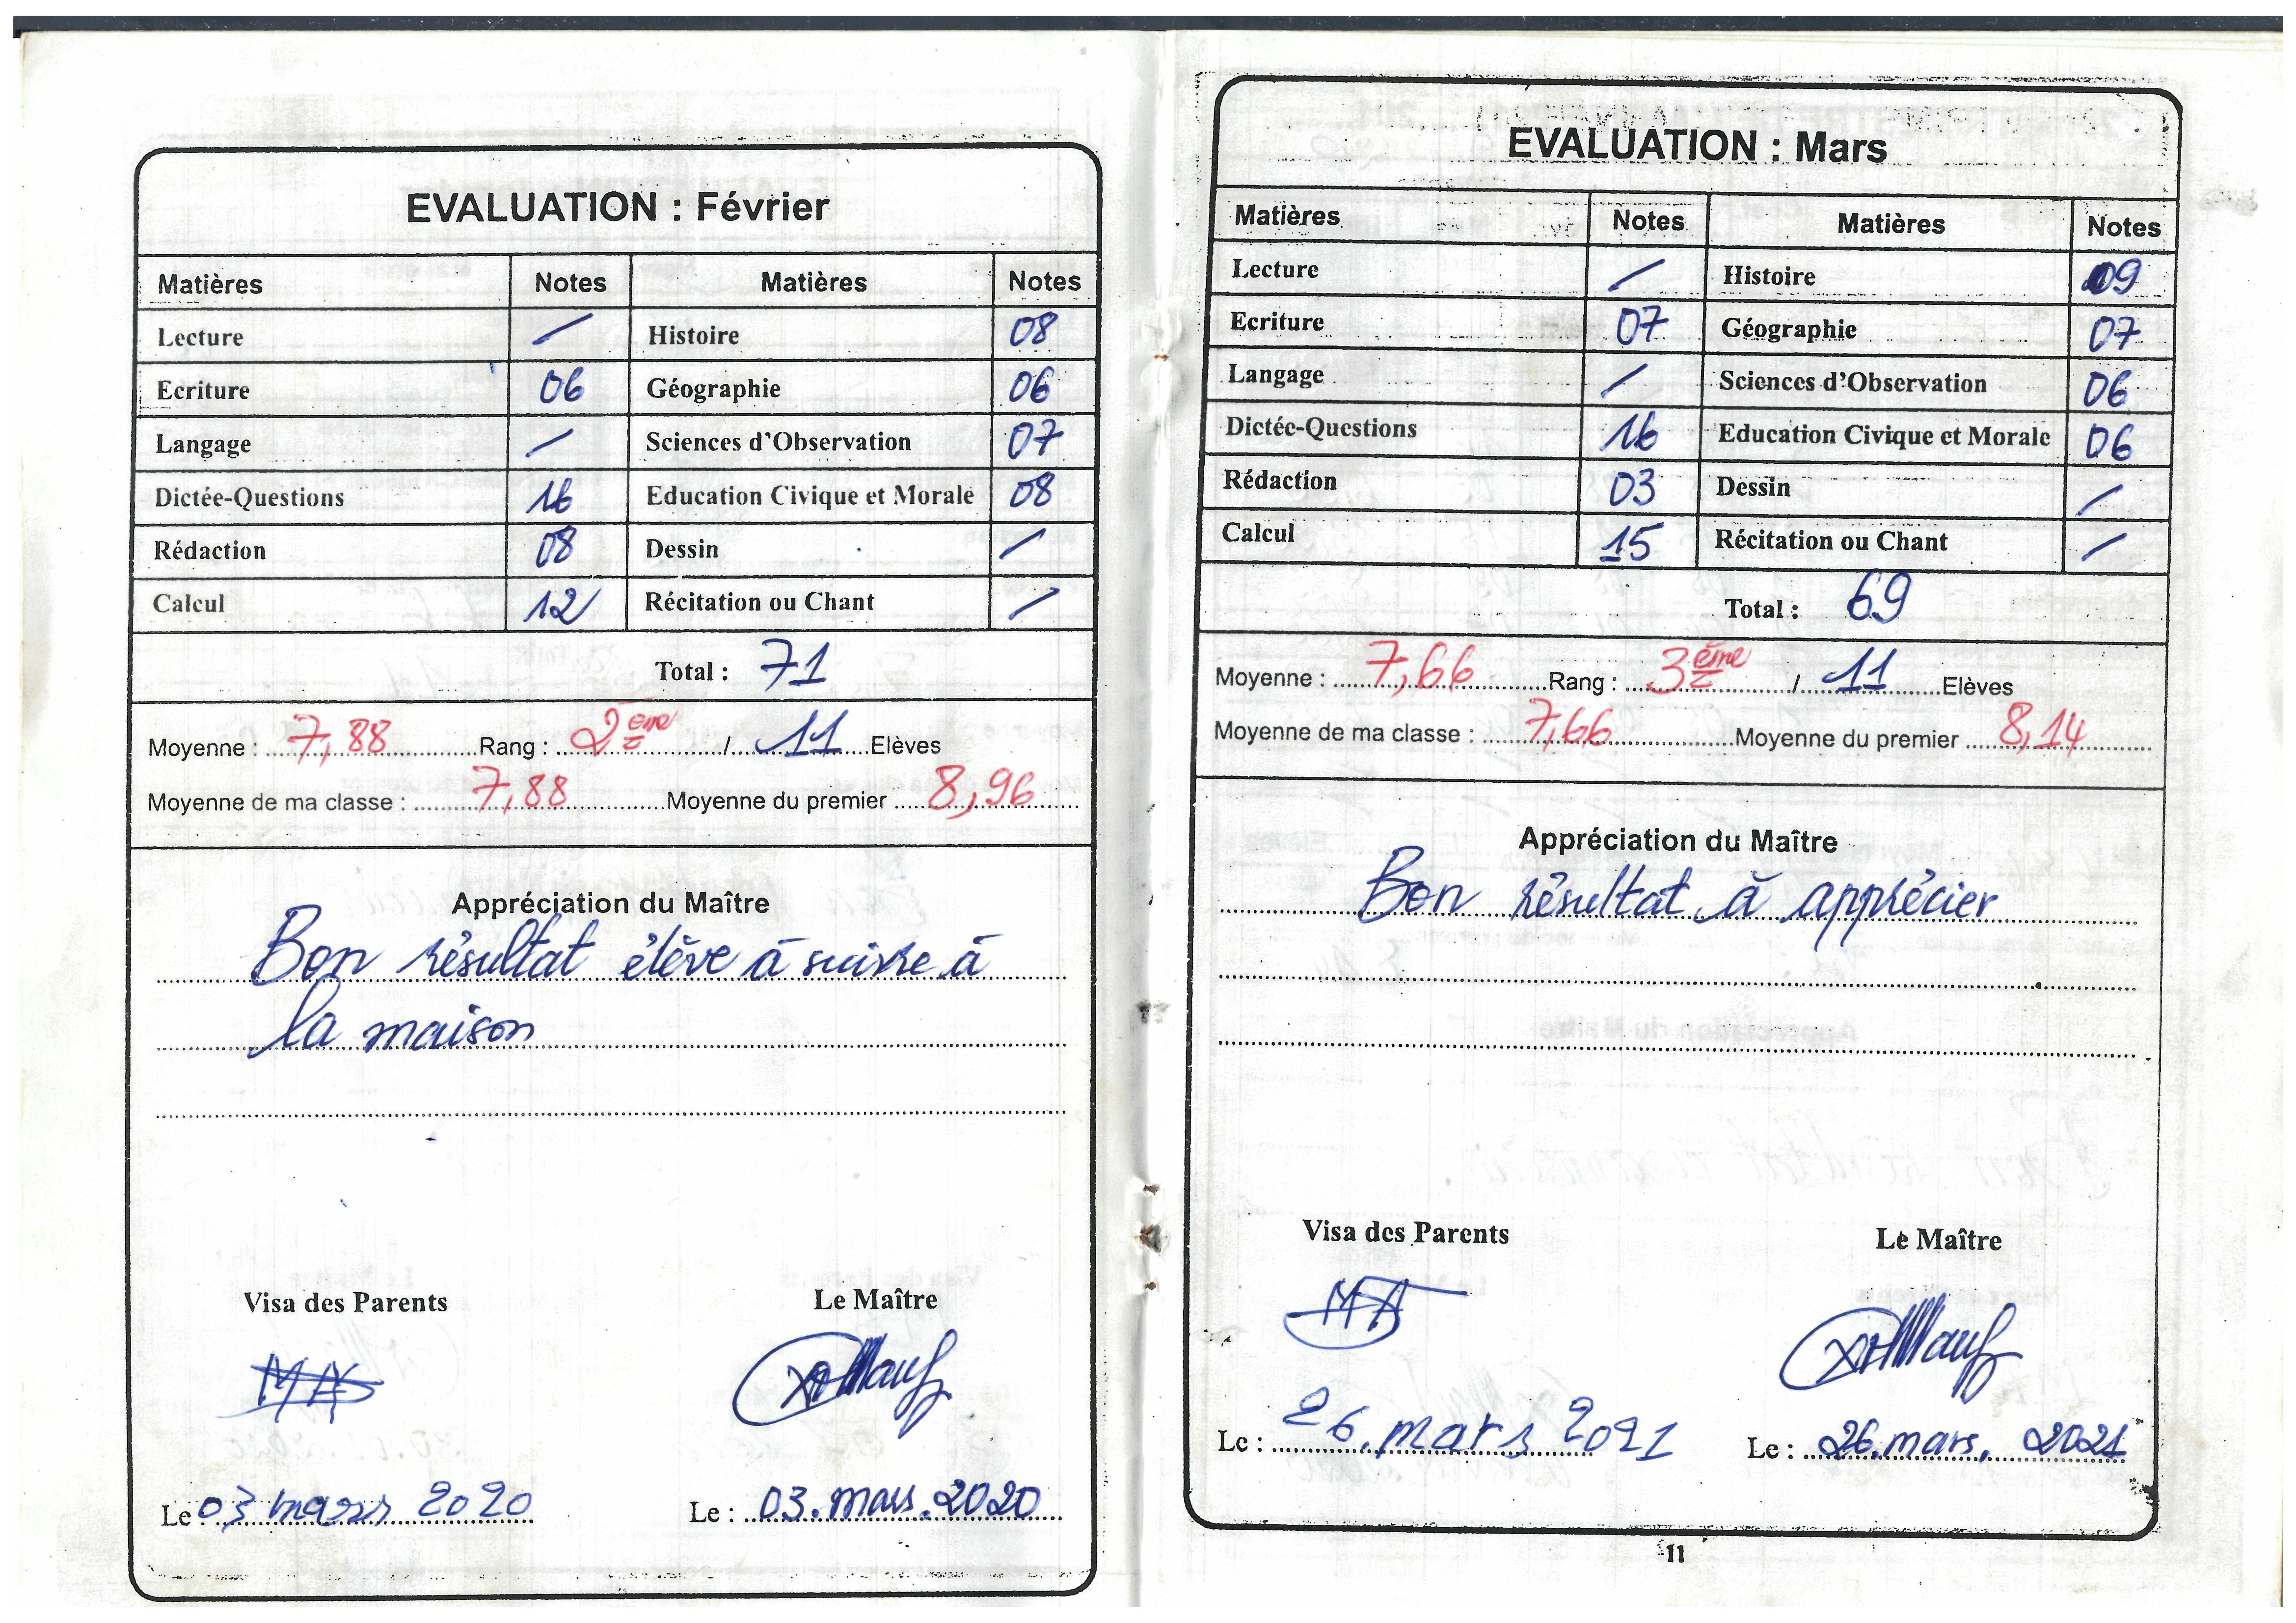 EVALUATION : Février
Matières Notes Matières Notes
Lecture / Histoire 08
Ecriture 06 Géographie 06
Langage / Sciences d'Observation 07
Dictée-Questions 16 Education Civique et Morale 08
Rédaction 08 Dessin /
Calcul 12 Récitation ou Chant /
Total : 71
Moyenne : 7,88 Rang : 2ème / 11 Elèves
Moyenne de ma classe : 7,88 Moyenne du premier 8,96
Appréciation du Maître
Bon résultat élève à suivre à
la maison
Visa des Parents Le Maître
Le : 03 mars 2020 Le : 03.mars.2020
EVALUATION : Mars
Matières Notes Matières Notes
Lecture / Histoire 09
Ecriture 07 Géographie 07
Langage / Sciences d'Observation 06
Dictée-Questions 16 Education Civique et Morale 06
Rédaction 03 Dessin /
Calcul 15 Récitation ou Chant /
Total : 69
Moyenne : 7,66 Rang : 3ème / 11 Elèves
Moyenne de ma classe : 7,66 Moyenne du premier 8,14
Appréciation du Maître
Bon résultat à apprécier
Visa des Parents Le Maître
Le : 26.mars 2021 Le : 26.mars. 2021
11